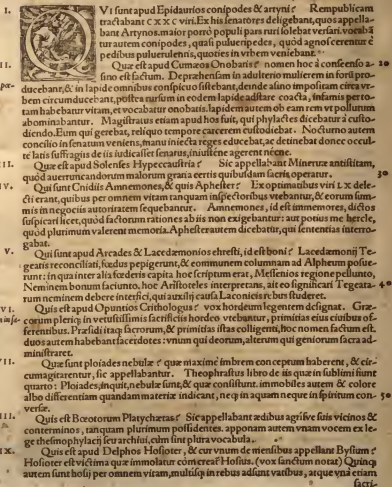 I. QVi sunt apud Epidaurios conipodes & artyni? Rempublicam
tractabant CXXC viri. Ex his senatores deligebant, quos appella-
bant Artynos. maior porrò populi pars ruri solebat versari. voca bã
tur autem conipodes, quasi pulueripedes, quòd agnoscerentur è
pedibus puluerulentis, quoties in vrbem veniebant.
II. Quæ est apud Cumæos Onobatis? nomen hoc à consenso a- 20
sino est factum. Deprehensam in adulterio mulierem in forũ pro-
ducebant, & in lapide omnibus conspicuo sistebant, dende asino impositam circa vr-
bem circumducebant, postea rursum in eodem lapide adstare coacta, infamis perro-
tam habebatur vitam, et vocabatur onobatis. lapidem autem ob eam rem vt pollutum
abominabantur. Magistratus etiam apud hos fuit, qui phylactes dicebatur à custo-
diendo. Eum qui gerebat, reliquo tempore carcerem custodiebat. Nocturno autem
concilio in senatum veniens, manu iniecta reges educebat, ac detinebat donec occul-
te latis suffragiis de iis iudicasset senatus, iniustene agerent nécne.
III. Quæ est apud Solenses Hypeccaustria? Sic appellabant Mineruæ antistitam,
quòd auerruncandorum malorum grania certis quibusdam sacris operatur. 30
IV. Qui sunt Cnidiis Amnemones, & quis Aphester? Ex optimatibus viri LX dele-
cti erant, quibus per omnem vitam tanquam inspectoribus vtebantur, & eorum sum-
mis in negociis autoritatem sequebantur. Amnemones, id est immemores, dictos
suspicari licet, quòd factorum rationes ab iis non exigebantur: aut potius me hercle,
quòd plurimum valerent memoria. Aphester autem dicebatur, qui sententias interro-
gabat.
V. Qui sunt apud Arcades & Lacedæmonios chresti, id est boni? Lacedæmonij Te-
geatis reconciliati, fœdus pepigerunt, & communem columnam ad Alpheum posue-
runt: in qua inter alia fœderis capita hoc scriptum erat, Messenios regione pellunto,
Neminem bonum faciunto. hoc Aristoteles interpretans, ait eo significari Tegeata- 40
rum neminem debere interfici, qui auxilij causa Laconicis rebus studeret.
VI. Quis est apud Opuntios Crithologus? vox hordeum legentem designat. Græ-
corum pleriq; in vetustissimis sacrificiis hordeo vtebantur, primitias eius ciuibus of-
ferentibus. Præsidi itaq; sacrorum, & primitias istas colligenti, hoc nomen factum est.
duos autem habebant sacerdotes: vnum qui deorum, alterum qui geniorum sacra ad-
ministraret.
VII. Quæ sunt ploiades nebulæ? quæ maximè imbrem conceptum haberent, & cir-
cumagitarentur, sic appellabantur. Theophrastus libro de iis quæ in sublimi fiunt
quarto: Ploiades, inquit, nebulæ sunt, & quæ consistunt. immobiles autem & colore
albo differentiam quandam materiæ indicant, neq; in aquam neque in spiritum con- 50
versæ.
III. Quis est apud Bœotorum Platychætas? Sic appellabant ædibus agrisve suis vicinos &
conterminos, tanquam plurimum possidentes. apponam autem vnam vocem ex le-
ge thesmophylacij seu archiui, cùm sint plura vocabula.
IX. Quis est apud Delphos Hosioter, & cur vnum de mensibus appellant Bysium?
Hosioter est victima quæ immolatur cùm creat Hosius. (vox sanctum notat) Quinq;
autem sunt hosij per omnem vitam, multisq; in rebus adsunt vatibus, atque vnà etiam
sacri-